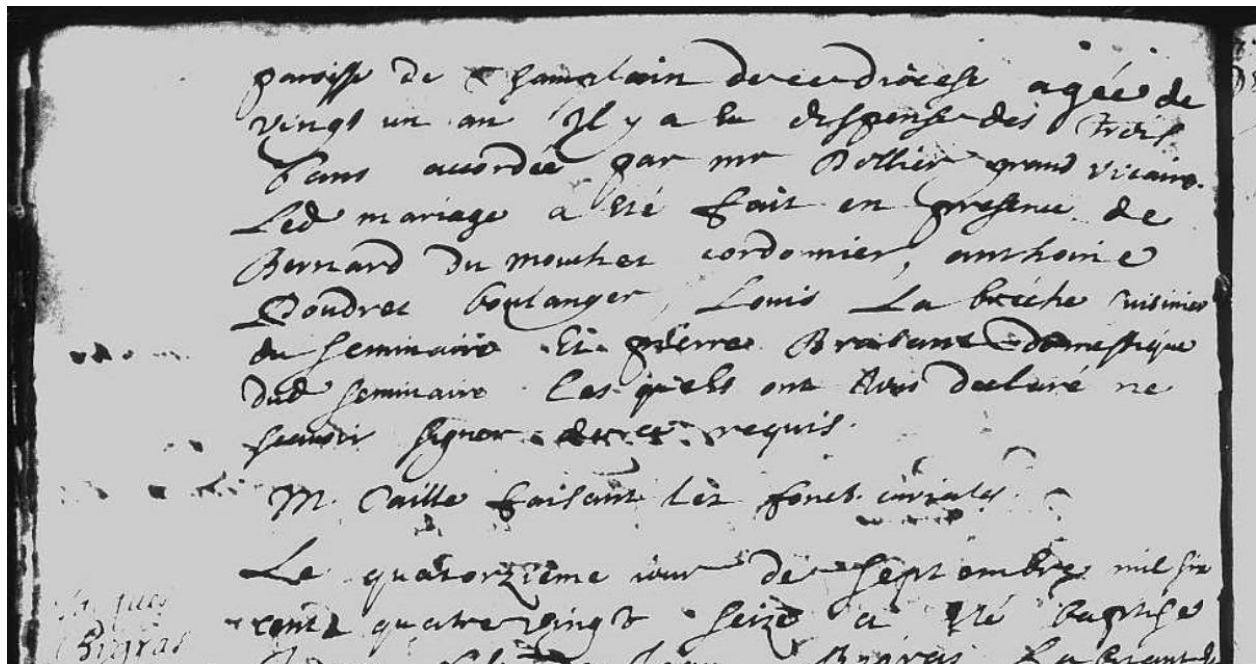 paroisse de Champlain de ce diocese agée de
vingt un an Il y a eu dispense des trois
bans accordée par mr Dollier grand vicaire.
Led mariage a été fait en presence de
Bernard du mouchet cordonnier, anthoine
Poudret boulanger, Louis La breche cuisinier
du seminaire Et pierre Brabant domestique
dud seminaire Lesquels ont tous declaré ne
scavoir signer de ce requis.
M. Caille faisant les fonct. curiales
Le quatorzième iour de septembre mil six
Jacques cents quatre vingt seize a eté baptisé
Bigras Jean Bigras